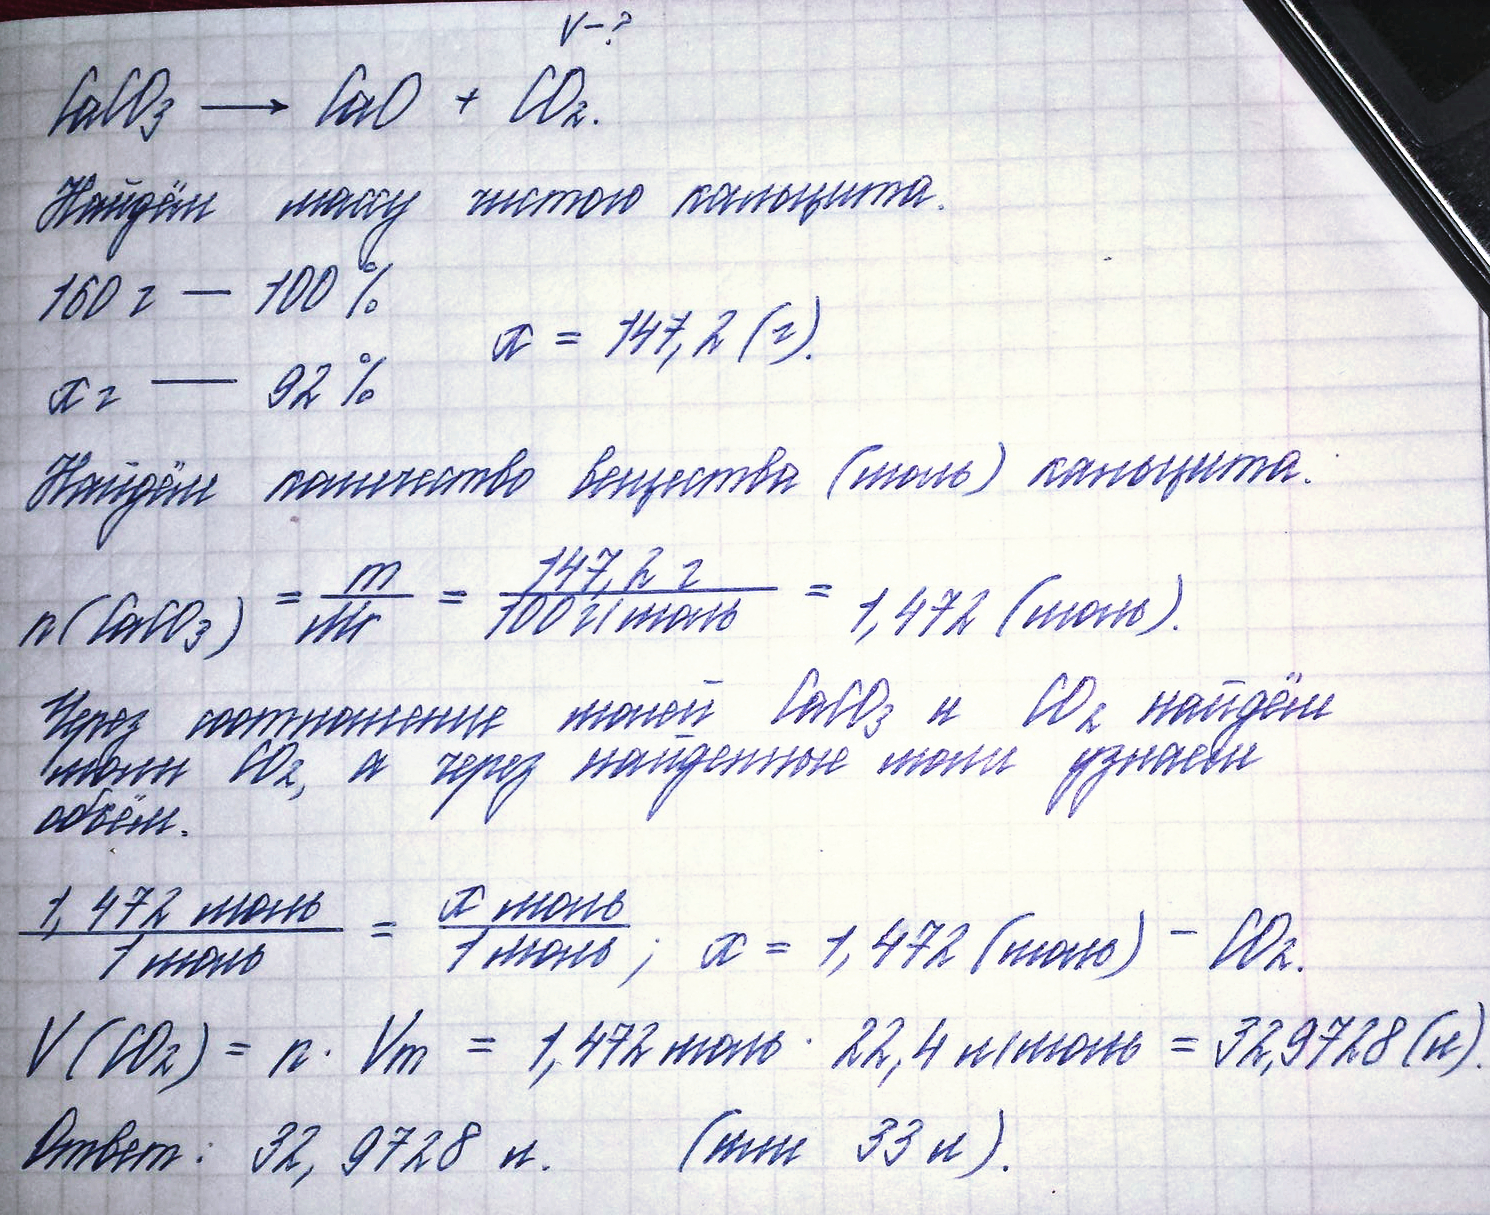 V-?
CaCO₃ → CaO + CO₂.
Найдём массу чистого кальцита.
160 г — 100 %
x = 147,2 (г).
x г — 92 %
Найдём количество вещества (моль) кальцита:
n(CaCO₃) = m/Mr = 147,2 г/100 г/моль = 1,472 (моль).
Через соотношение молей CaCO₃ и CO₂ найдём
моли CO₂, а через найденные моли узнаем
объём.
1,472 моль/1 моль = x моль/1 моль; x = 1,472 (моль) - CO₂.
V(CO₂) = n · Vm = 1,472 моль · 22,4 л/моль = 32,9728 (л).
Ответ: 32,9728 л. (или 33 л).